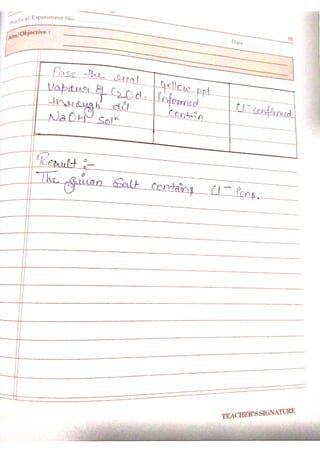 Practical/Experiment No
Aim/Objective :
Date
Pass the
vapour of
through dil
NaOH Sol^n
yellow ppt
Informed
contain
Cl⁻ confirmed
Result :-
The given Salt contains Cl⁻ ions.
TEACHER'S SIGNATURE